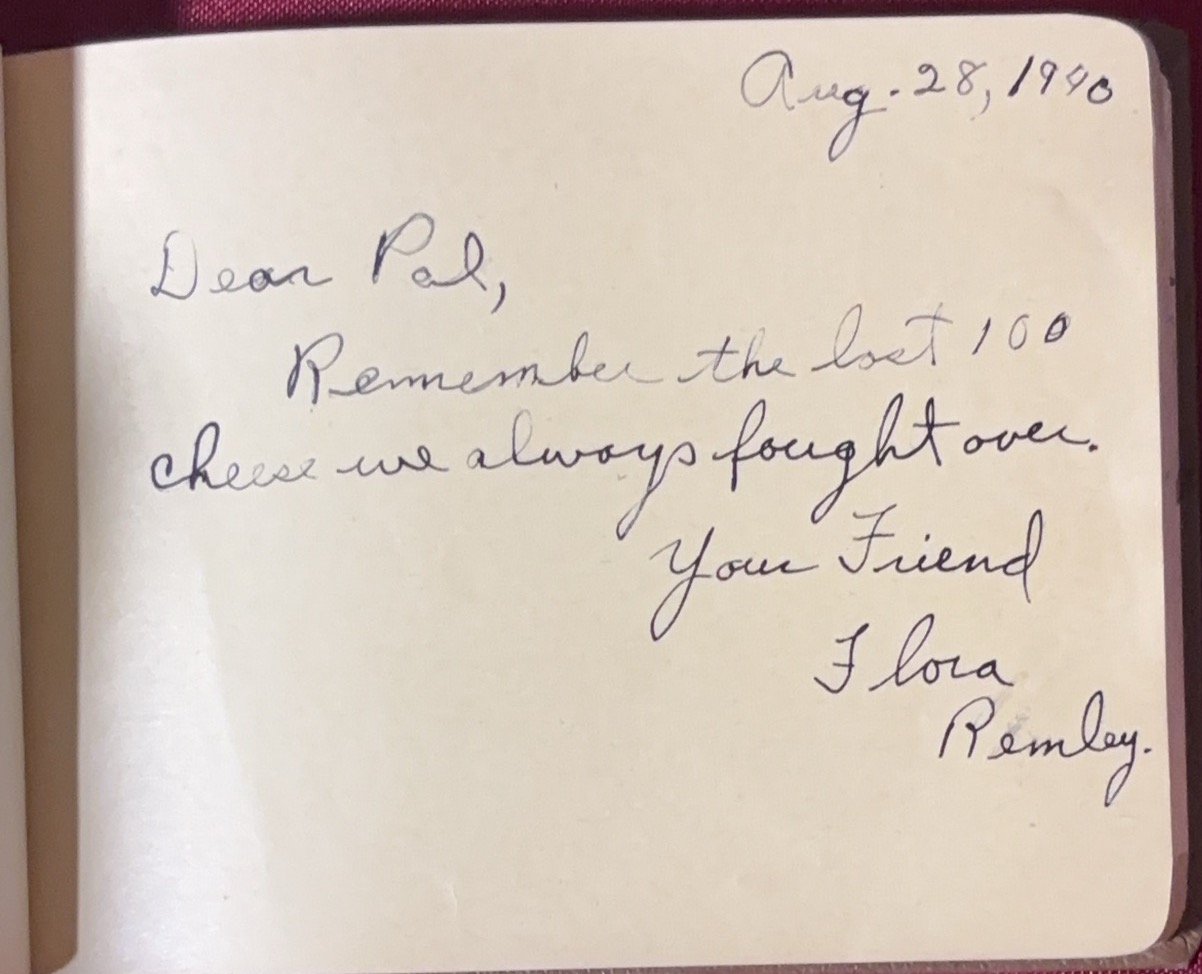 Aug. 28, 1940
Dear Pal,
Remember the last 100
cheese we always fought over.
Your Friend
Flora
Remley.